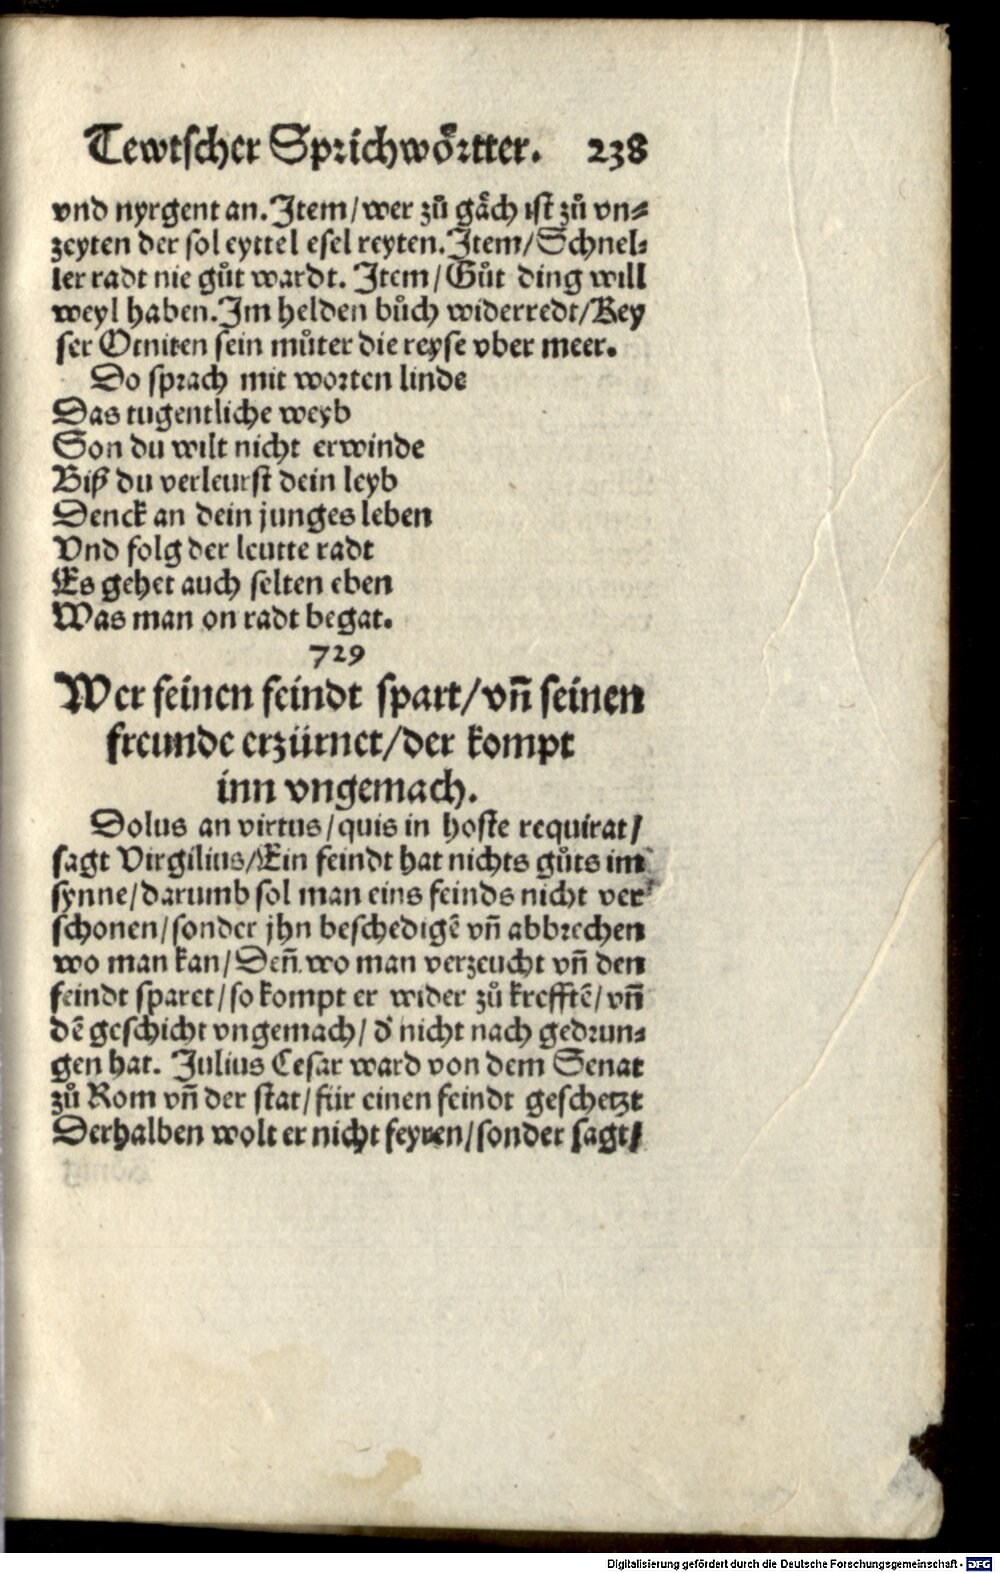 Tewtscher Sprichwoͤrtter. 238
vnd nyrgent an. Item/wer zuͦ gaͤch ist zuͦ vn⸗
zeyten der sol eyttel esel reyten. Item/Schnel⸗
ler radt nie guͦt wardt. Item/Guͦt ding will
weyl haben. Im helden buͦch widerredt/Key
ser Otniten sein muͦter die reyse vber meer.
Do sprach mit worten linde
Das tugentliche weyb
Son du wilt nicht erwinde
Biß du verleurst dein leyb
Denck an dein junges leben
Vnd folg der leutte radt
Es gehet auch selten eben
Was man on radt begat.
729
Wer seinen feindt spart/vñ seinen
freunde erzürnet/der kompt
inn vngemach.
Dolus an virtus/quis in hoste requirat/
sagt Virgilius/Ein feindt hat nichts guͦts im
synne/darumb sol man eins feinds nicht ver
schonen/sonder jhn beschedigẽ vñ abbrechen
wo man kan/Deñ wo man verzeucht vñ den
feindt sparet/so kompt er wider zuͦ krefftẽ/vñ
dẽ geschicht vngemach/d' nicht nach gedrun⸗
gen hat. Julius Cesar ward von dem Senat
zuͦ Rom vñ der stat/für einen feindt geschetzt
Derhalben wolt er nicht feyren/sonder sagt/
Digitalisierung gefördert durch die Deutsche Forschungsgemeinschaft - DFG